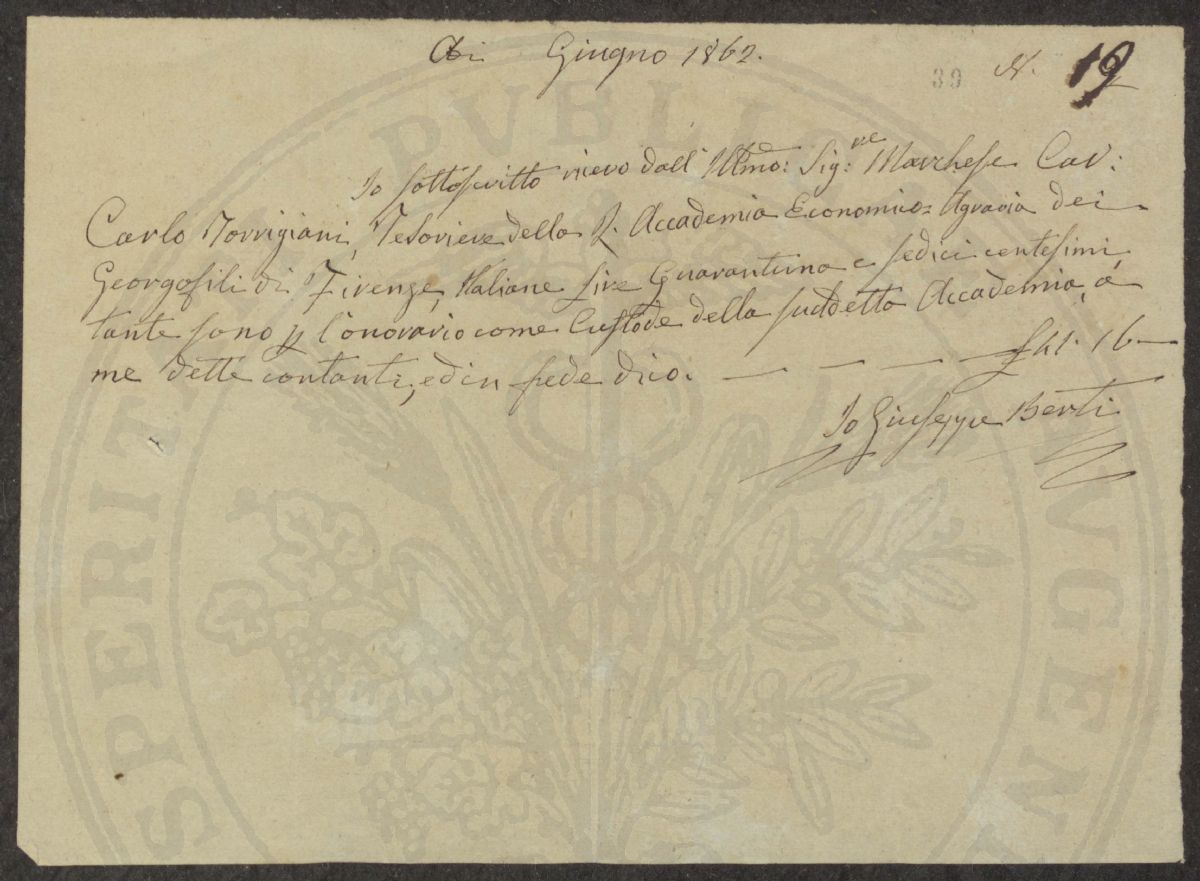 Adi Giugno 1862.
39 N. 19
Io sottoscritto ricevo dall' Illmo: Sig:re Marchese Cav:
Carlo Torrigiani, Tesoriere della R. Accademia Economico=Agraria dei
Georgofili di Firenze, Italiane Lire Quarantuna e sedici centesimi
tante sono p l'onorario come Custode della suddetta Accademia, a
me dette contanti, ed in fede dico. — — — — £41. 16—
Io Giuseppe Berti
PROSPERITATI PUBLICAE AUGENDAE